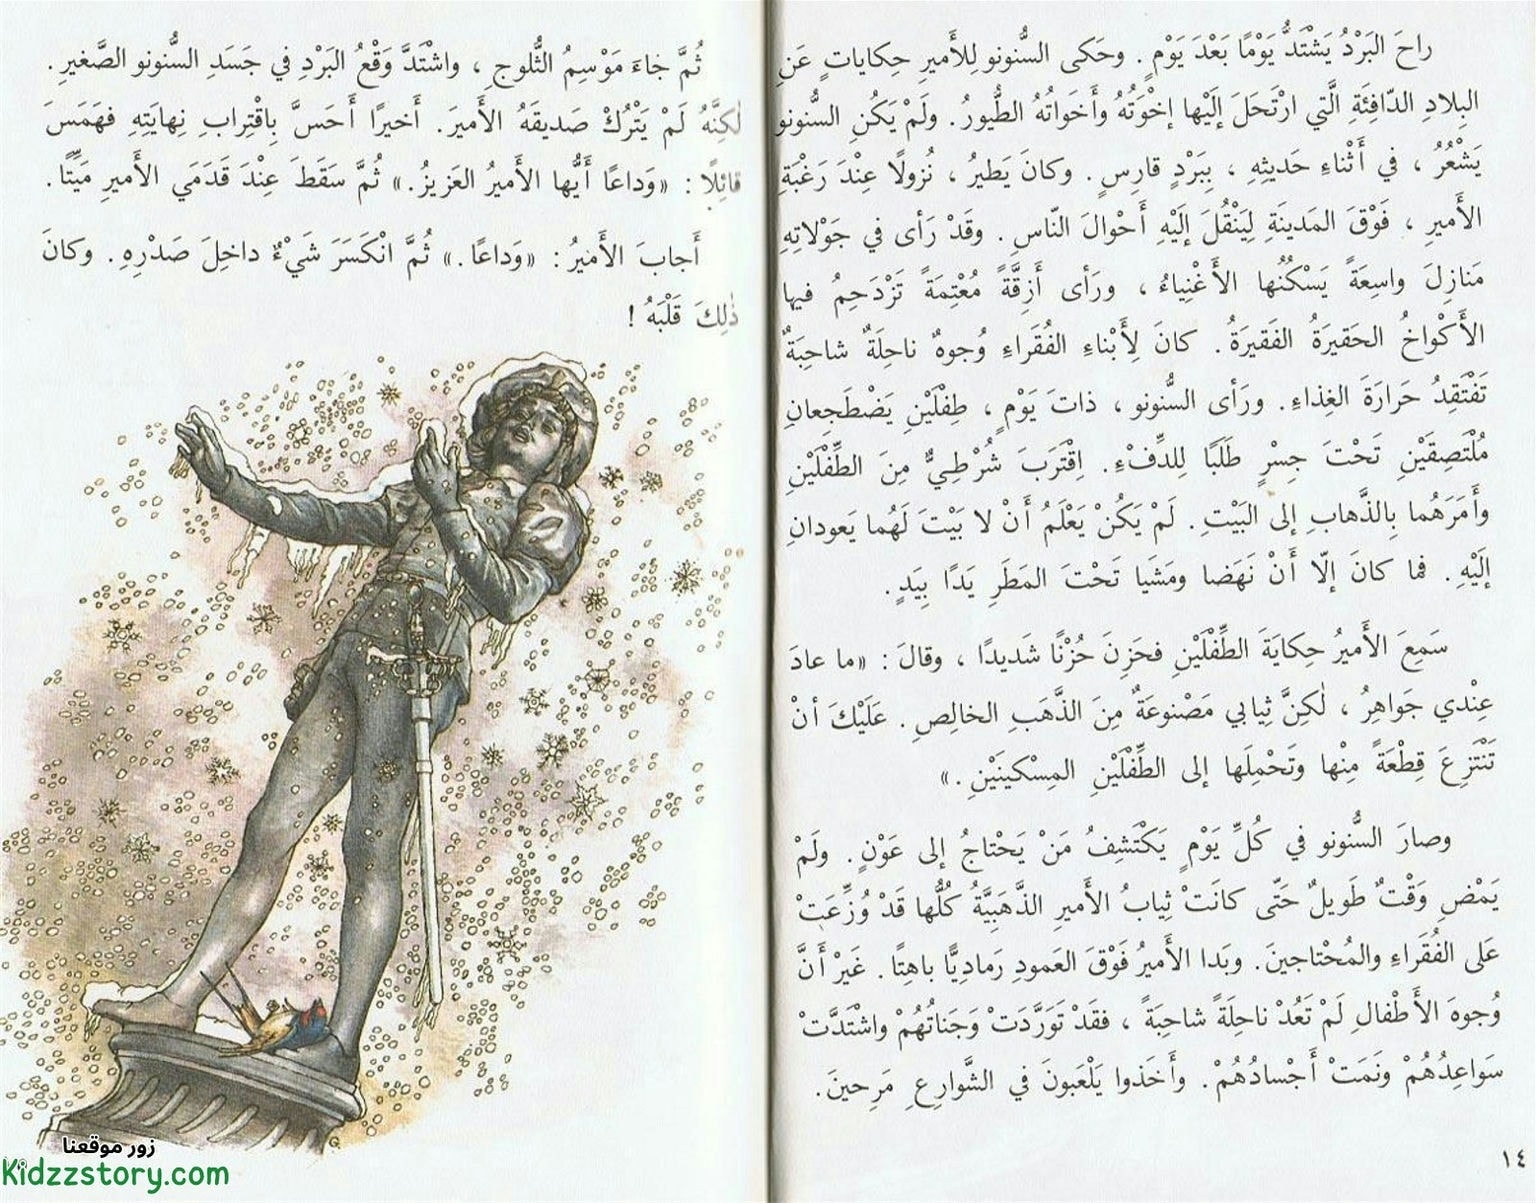 راحَ البَرْدُ يَشْتَدُّ يَوْمًا بَعْدَ يَوْمٍ. وحَكى السُّنونو لِلأَميرِ حِكاياتٍ عَنِ
البِلادِ الدّافِئَةِ الَّتي ارْتَحَلَ إلَيْها إخْوَتُهُ وأَخَواتُهُ الطُّيورُ. ولَمْ يَكُنِ السُّنونو
يَشْعُرُ، في أَثْناءِ حَديثِهِ، بِبَرْدٍ قارِسٍ. وكانَ يَطيرُ، نُزولًا عِنْدَ رَغْبَةِ
الأَميرِ، فَوْقَ المَدينَةِ لِيَنْقُلَ إلَيْهِ أَحْوالَ النّاسِ. وقَدْ رَأى في جَوْلاتِهِ
مَنازِلَ واسِعَةً يَسْكُنُها الأَغْنِياءُ، ورَأى أَزِقَّةً مُعْتِمَةً تَزْدَحِمُ فيها
الأَكْواخُ الحَقيرَةُ الفَقيرَةُ. كانَ لِأَبْناءِ الفُقَراءِ وُجوهٌ ناحِلَةٌ شاحِبَةٌ
تَفْتَقِدُ حَرارَةَ الغِذاءِ. ورَأى السُّنونو، ذاتَ يَوْمٍ، طِفْلَيْنِ يَضْطَجِعانِ
مُلْتَصِقَيْنِ تَحْتَ جِسْرٍ طَلَبًا لِلدِّفْءِ. اِقْتَرَبَ شُرْطِيٌّ مِنَ الطِّفْلَيْنِ
وأَمَرَهُما بِالذَّهابِ إلى البَيْتِ. لَمْ يَكُنْ يَعْلَمُ أَنْ لا بَيْتَ لَهُما يَعودانِ
إلَيْهِ. فما كانَ إلّا أَنْ نَهَضا ومَشَيا تَحْتَ المَطَرِ يَدًا بِيَدٍ.
سَمِعَ الأَميرُ حِكايَةَ الطِّفْلَيْنِ فحَزِنَ حُزْنًا شَديدًا، وقالَ: «ما عادَ
عِنْدي جَواهِرُ، لٰكِنَّ ثِيابي مَصْنوعَةٌ مِنَ الذَّهَبِ الخالِصِ. عَلَيْكَ أنْ
تَنْتَزِعَ قِطْعَةً مِنْها وتَحْمِلَها إلى الطِّفْلَيْنِ المِسْكينَيْنِ.»
وصارَ السُّنونو في كُلِّ يَوْمٍ يَكْتَشِفُ مَنْ يَحْتاجُ إلى عَوْنٍ. ولَمْ
يَمْضِ وَقْتٌ طَويلٌ حَتّى كانَتْ ثِيابُ الأَميرِ الذَّهَبِيَّةُ كُلُّها قَدْ وُزِّعَتْ
عَلى الفُقَراءِ والمُحْتاجينَ. وبَدا الأَميرُ فَوْقَ العَمودِ رَمادِيًّا باهِتًا. غَيْرَ أَنَّ
وُجوهَ الأَطْفالِ لَمْ تَعُدْ ناحِلَةً شاحِبَةً، فقَدْ تَوَرَّدَتْ وَجَناتُهُمْ واشْتَدَّتْ
سَواعِدُهُمْ ونَمَتْ أَجْسادُهُمْ. وأَخَذوا يَلْعَبونَ في الشَّوارِعِ مَرِحينَ.
١٤
ثُمَّ جاءَ مَوْسِمُ الثُّلوجِ، واشْتَدَّ وَقْعُ البَرْدِ في جَسَدِ السُّنونو الصَّغيرِ.
لٰكِنَّهُ لَمْ يَتْرُكْ صَديقَهُ الأَميرَ. أَخيرًا أَحَسَّ بِاقْتِرابِ نِهايَتِهِ فهَمَسَ
قائِلًا: «وَداعًا أَيُّها الأَميرُ العَزيزُ.» ثُمَّ سَقَطَ عِنْدَ قَدَمَيِ الأَميرِ مَيِّتًا.
أَجابَ الأَميرُ: «وَداعًا.» ثُمَّ انْكَسَرَ شَيْءٌ داخِلَ صَدْرِهِ. وكانَ
ذٰلِكَ قَلْبَهُ!
زور موقعنا
Kidzzstory.com